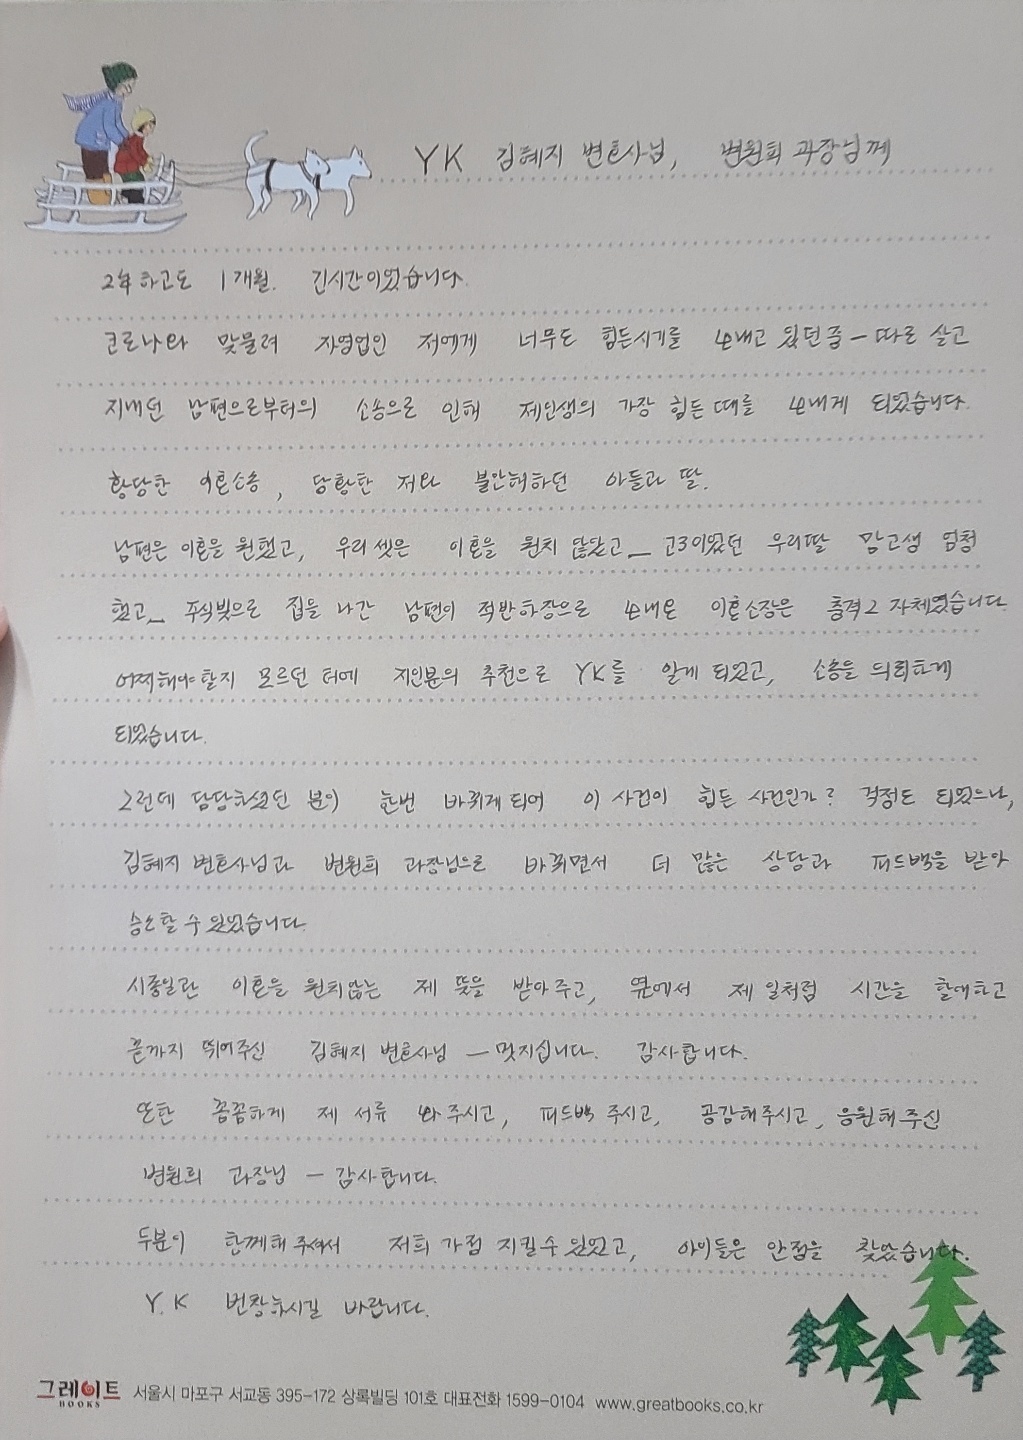 YK 김혜지 변호사님, 변원희 과장님께
2年하고도 1개월. 긴시간이었습니다.
코로나와 맞물려 자영업인 저에게 너무도 힘든시기를 보내고 있던중 - 따로 살고
지내던 남편으로부터의 소송으로 인해 제인생의 가장 힘든때를 보내게 되었습니다.
황당한 이혼소송, 당황한 저와 불안해하던 아들과 딸.
남편은 이혼을 원했고, 우리셋은 이혼을 원치 않았고_ 고3이었던 우리딸 맘고생 엄청
했고_ 주식빚으로 집을 나간 남편이 적반하장으로 보내온 이혼소장은 충격그 자체였습니다.
어찌해야할지 모르던 터에 지인분의 추천으로 YK를 알게 되었고, 소송을 의뢰하게
되었습니다.
그런데 담당하셨던 분이 한번 바뀌게되어 이 사건이 힘든 사건인가? 걱정도 되었으나,
김혜지 변호사님과 변원희 과장님으로 바뀌면서 더 많은 상담과 피드백을 받아
승소할 수 있었습니다.
시종일관 이혼을 원치않는 제 뜻을 받아주고, 옆에서 제 일처럼 시간을 할애하고
끝까지 뛰어주신 김혜지 변호사님 - 멋지십니다. 감사합니다.
또한 꼼꼼하게 제 서류 봐주시고, 피드백 주시고, 공감해주시고, 응원해주신
변원희 과장님 - 감사합니다.
두분이 함께해 주셔서 저희 가정 지킬수 있었고, 아이들은 안정을 찾았습니다.
Y.K 번창하시길 바랍니다.
그레이트 BOOKS 서울시 마포구 서교동 395-172 상록빌딩 101호 대표전화 1599-0104 www.greatbooks.co.kr